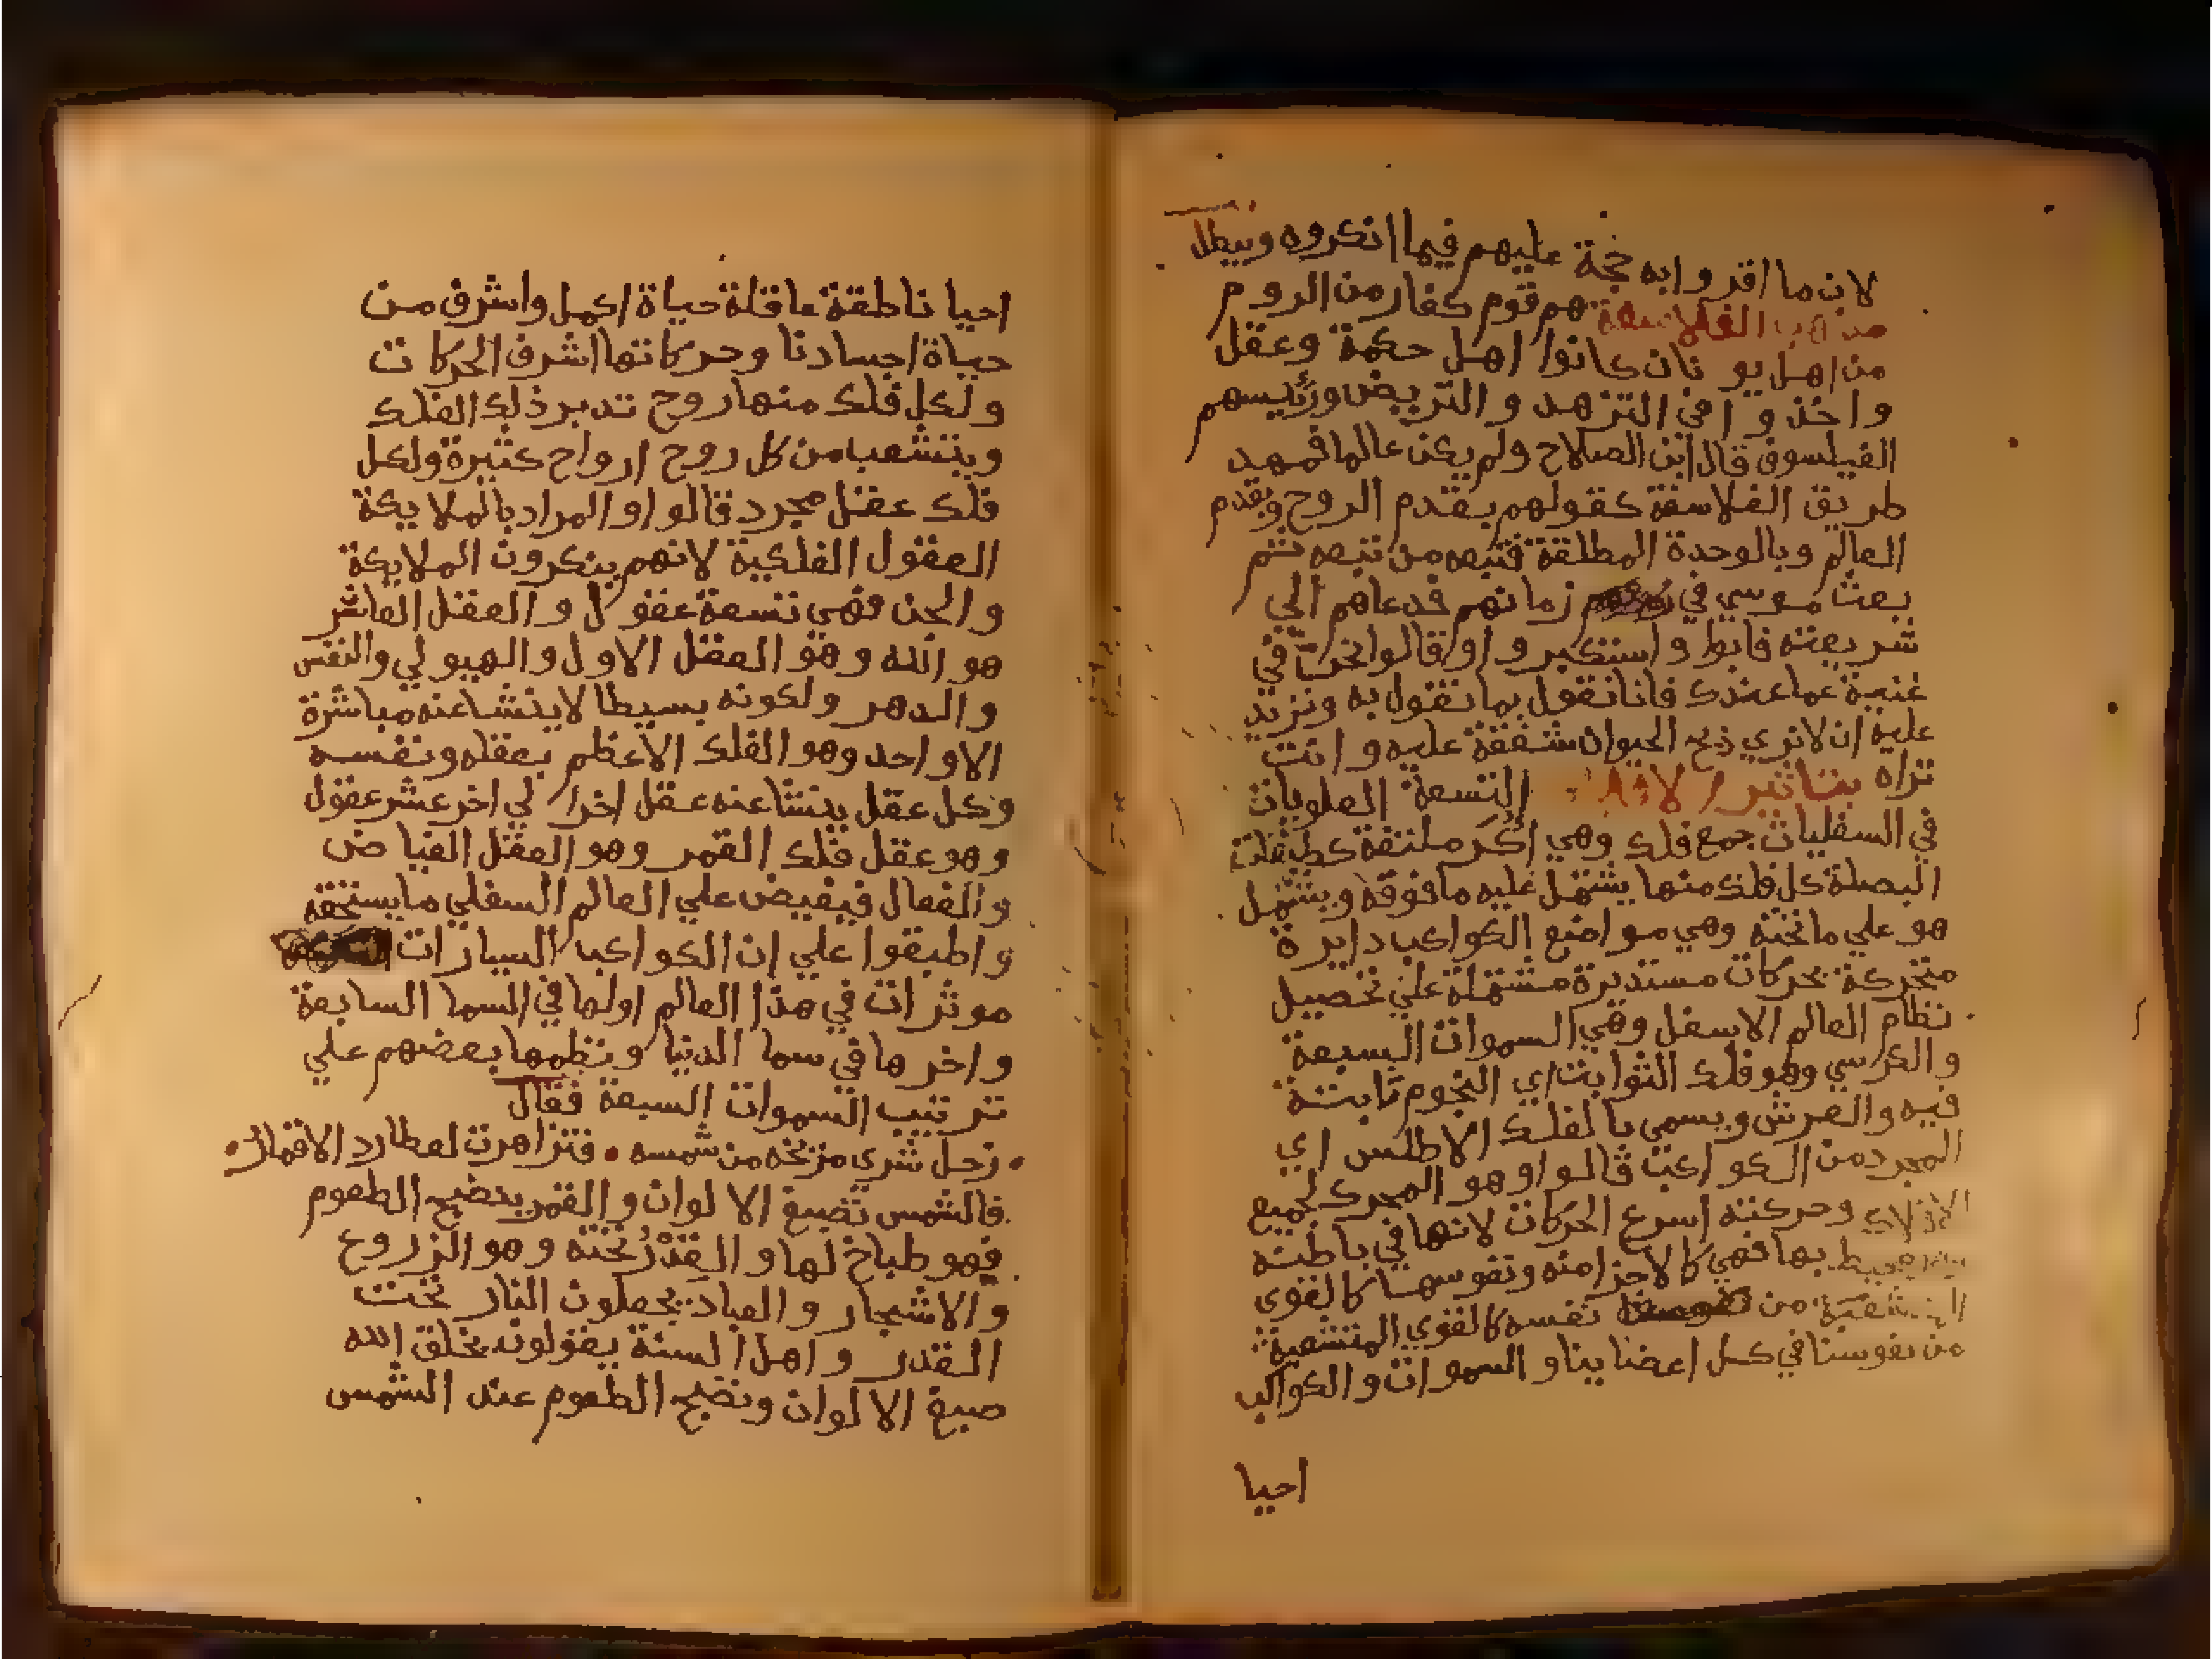 لان ما اقروا به حجة عليهم فيما انكروه ويبطل
مذهب الفلاسفة هم قوم كفار من الروم
من اهل يونان كانوا اهل حكمة وعقل
واخذوا في التزهد والتريض ورئيسهم
الفيلسوف قال ابن الصلاح ولم يكن عالما فمهد
طريق الفلاسفة كقولهم بقدم الروح وبقدم
العالم وبالوحدة المطلقة فتبعه من تبعه ثم
بعث موسي في زمانهم فدعاهم الي
شريعته فابوا واستكبروا وقالوا نحن في
غنية عما عندك فانا نقول بما تقول به ونزيد
عليه ان لا نري ذبح الحيوان شفقة عليه وانت
تراه بتاثير التسعة العلويات
في السفليات جمع فلك وهي اكر ملتفة كطبقات
البصلة كل فلك منها يشتمل عليه ما فوقه ويشتمل
هو علي ما تحته وهي مواضع الكواكب دايرة
متحركة بحركات مستديرة مشتملة علي تحصيل
نظام العالم الاسفل وهي السموات السبعة
والكرسي وهو فلك الثوابت اي النجوم ثابتة
فيه والعرش ويسمي بالفلك الاطلس اي
المجرد من الكواكب قالوا وهو المحرك لجميع
الافلاك وحركته اسرع الحركات لانها في باطنه
محيط بها فهي كالاجزا منه ونفوسها كالقوي
من نفسه كالقوي المتشعبة
من نفوسنا في كل اعضايينا والسموات والكواكب
احيا
احيا ناطقة عاقلة حياة اكمل واشرف من
حياة اجسادنا وحركاتها اشرف الحركات
ولكل فلك منها روح تدبر ذلك الفلك
ويتشعب من كل روح ارواح كثيرة ولكل
فلك عقل مجرد قالوا والمراد بالملايكة
العقول الفلكية لانهم ينكرون الملايكة
والجن فهي تسعة عقول والعقل العاشر
هو الله وهو العقل الاول والهيولي والنفس
والدهر ولكونه بسيطا لا ينشا عنه مباشرة
الا واحد وهو الفلك الاعظم بعقله ونفسه
وكل عقل ينشا عنه عقل اخر الي اخر عشر عقول
وهو عقل فلك القمر وهو العقل الفياض
والفعال فيفيض علي العالم السفلي ما يستحقه
واطبقوا علي ان الكواكب السيارات
موثرات في هذا العالم اولها في السما السابعة
واخرها في سما الدنيا ونظمها بعضهم علي
ترتيب السموات السبعة فقال
زحل شري مريخه من شمسه • فتزاهرت لعطارد الاقمار
فالشمس تصبغ الالوان والقمر ينضج الطعوم
فهو طباخ لها والقدر تحته وهو الزروع
والاشجار والعباد يجعلون النار تحت
القدر واهل السنة يقولون بخلق الله
صبغ الالوان ونضج الطعوم عند الشمس